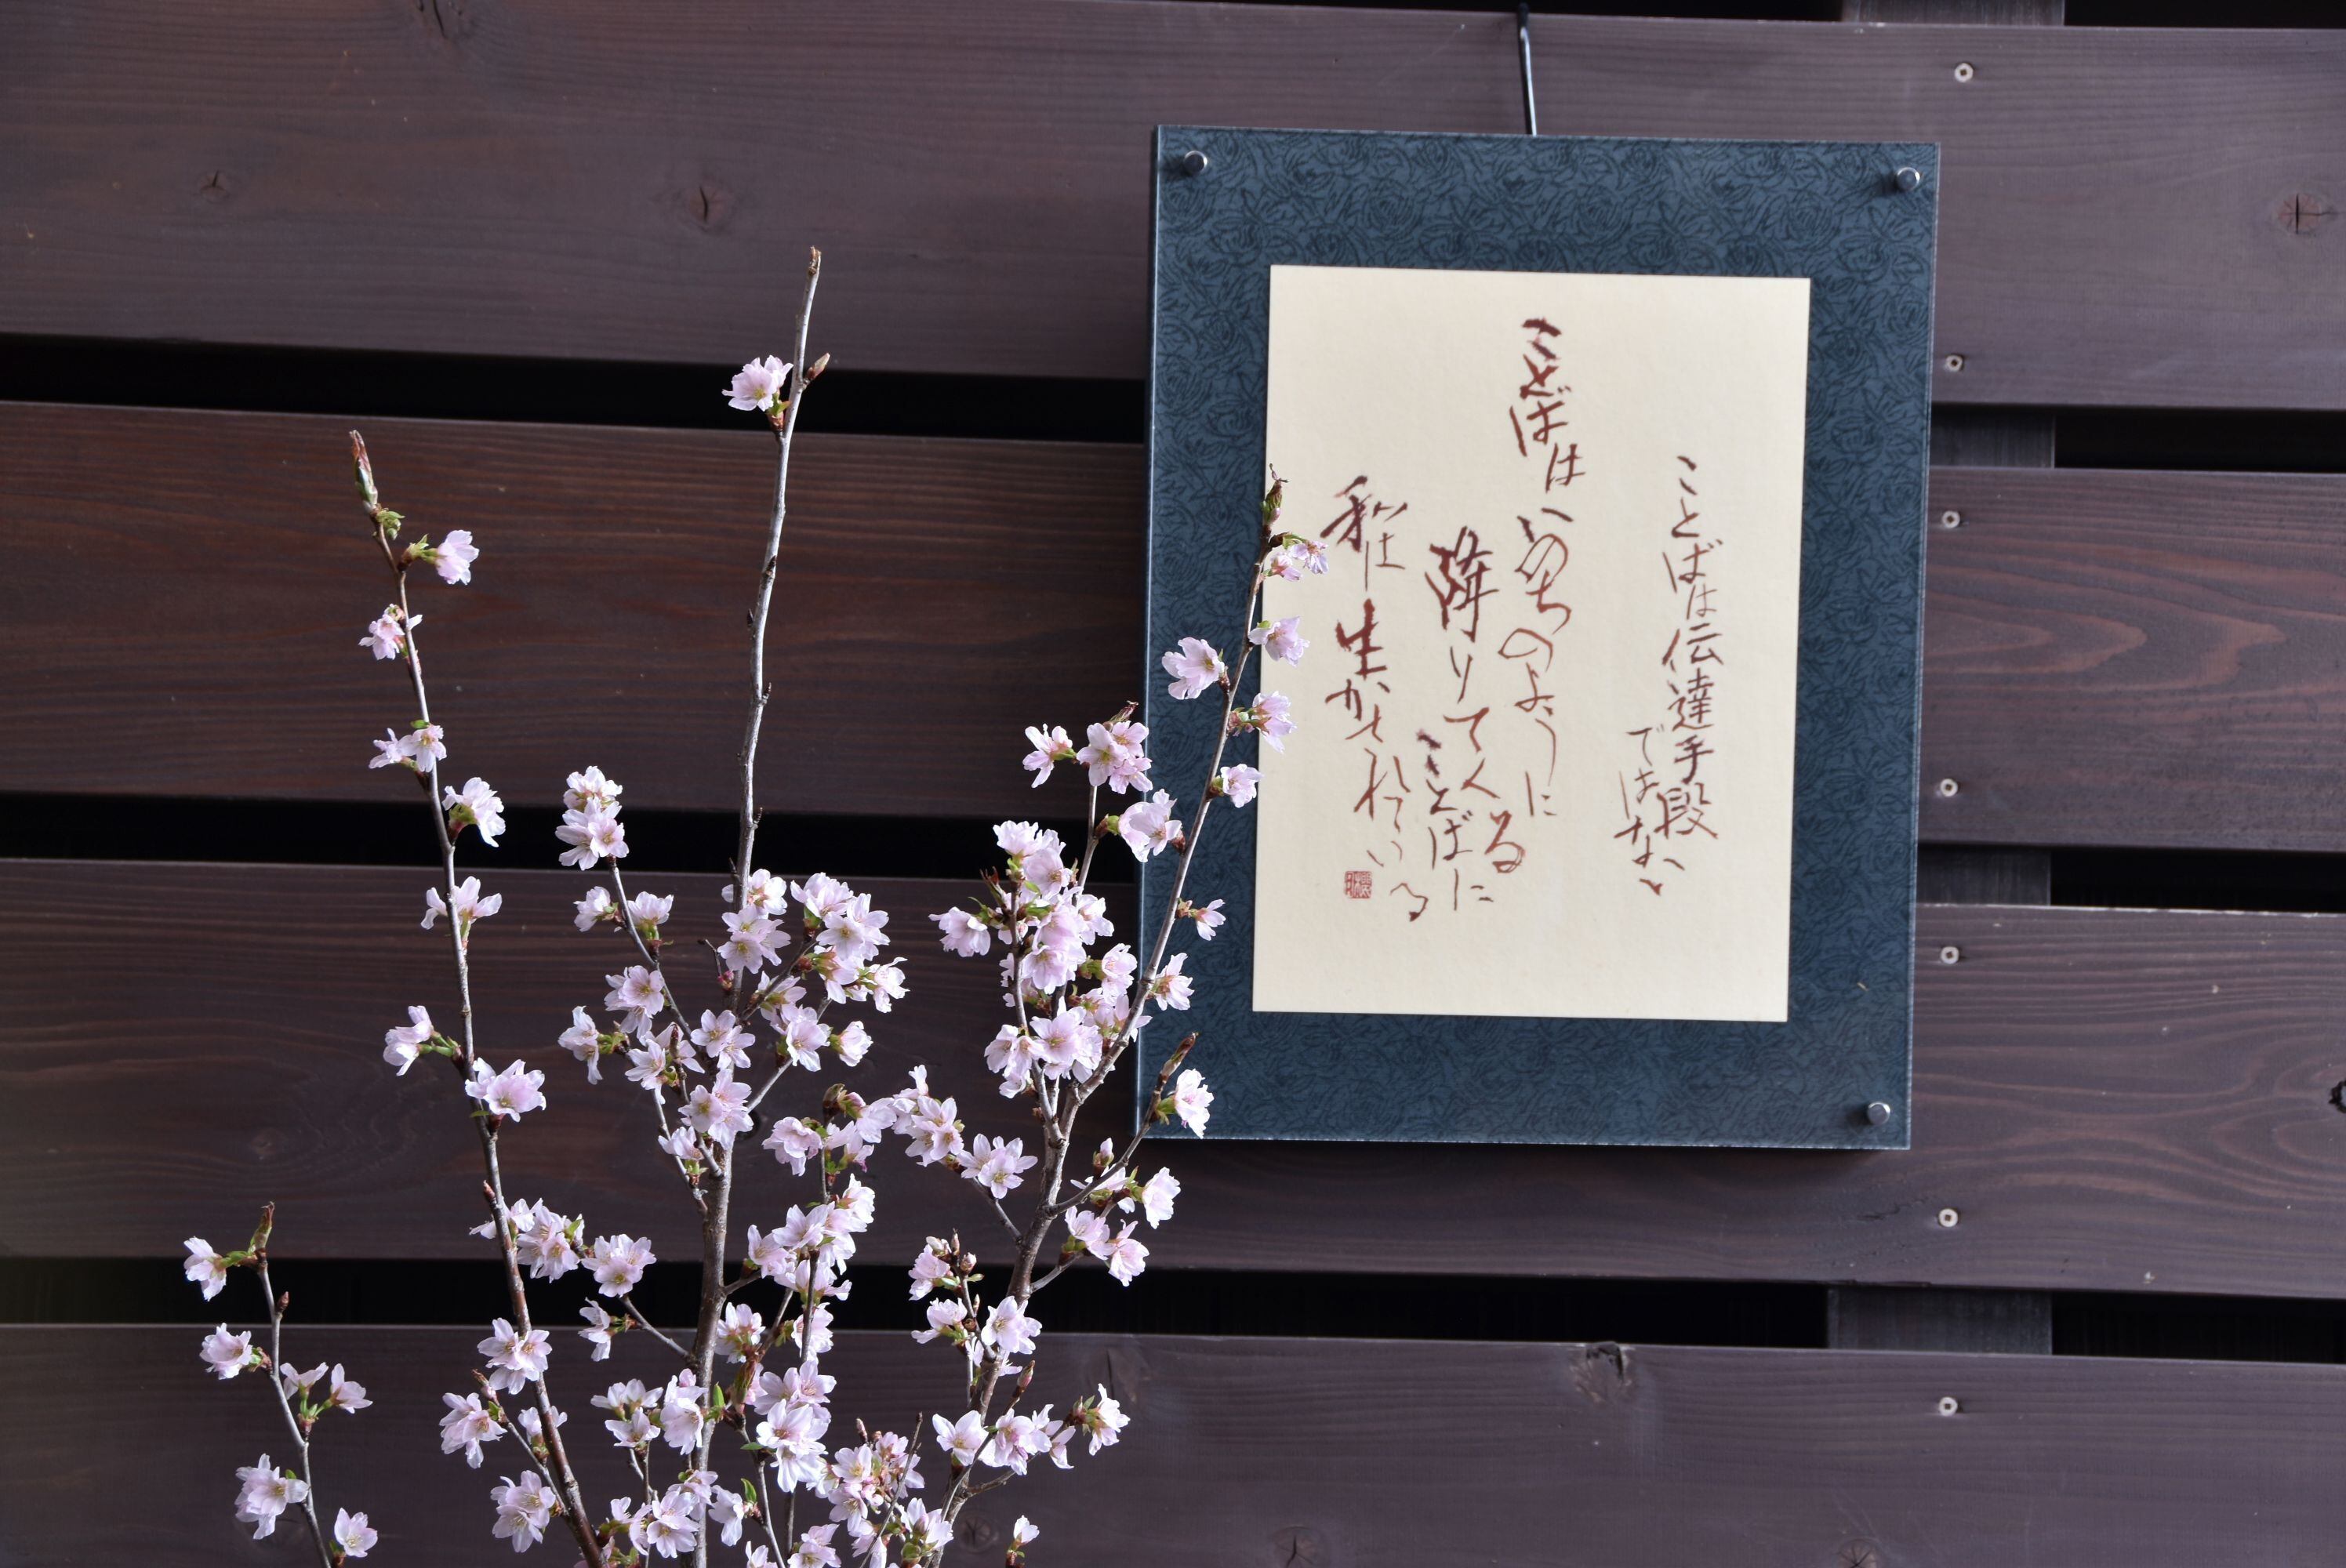 ことばは伝達手段
ではない
ことばはいのちのように
降りてくる
ことばに
私は生かされている